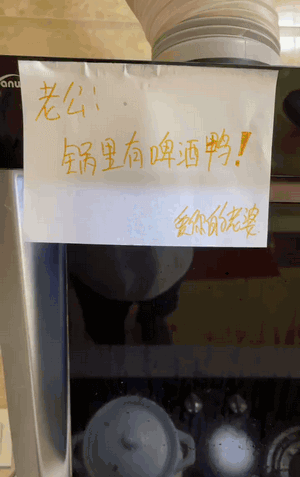 老公：
锅里有啤酒鸭！
爱你的老婆